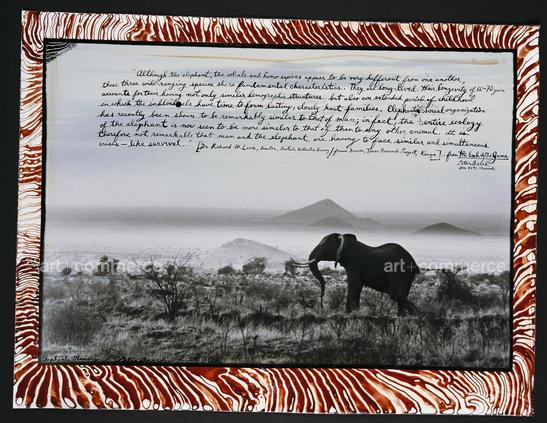 Although the elephant, the whale and homo sapiens appear to be very different from one another
these three wide-ranging species share fundamental characteristics. They all long-lived. Their longevity of 60-70 years
accounts for their having not only similar demographic structures but also an extended period of childhood
in which the individuals have time to form lasting, closely knit families. Elephants social organization
has recently been shown to be remarkably similar to that of man; in fact, the entire ecology
of the elephant is now seen to be more similar to that of man than to any other animal. it is
therefore not remarkable that man and the elephant are having to face similar and simultaneous
crisis - like survival."
[Dr. Richard M. Laws, Director, British Antarctic Survey / former Director, Tsavo Research Project, Kenya] .. from The End of the Game
Peter Beard
art+commerce art+commerce
Elephants Memory